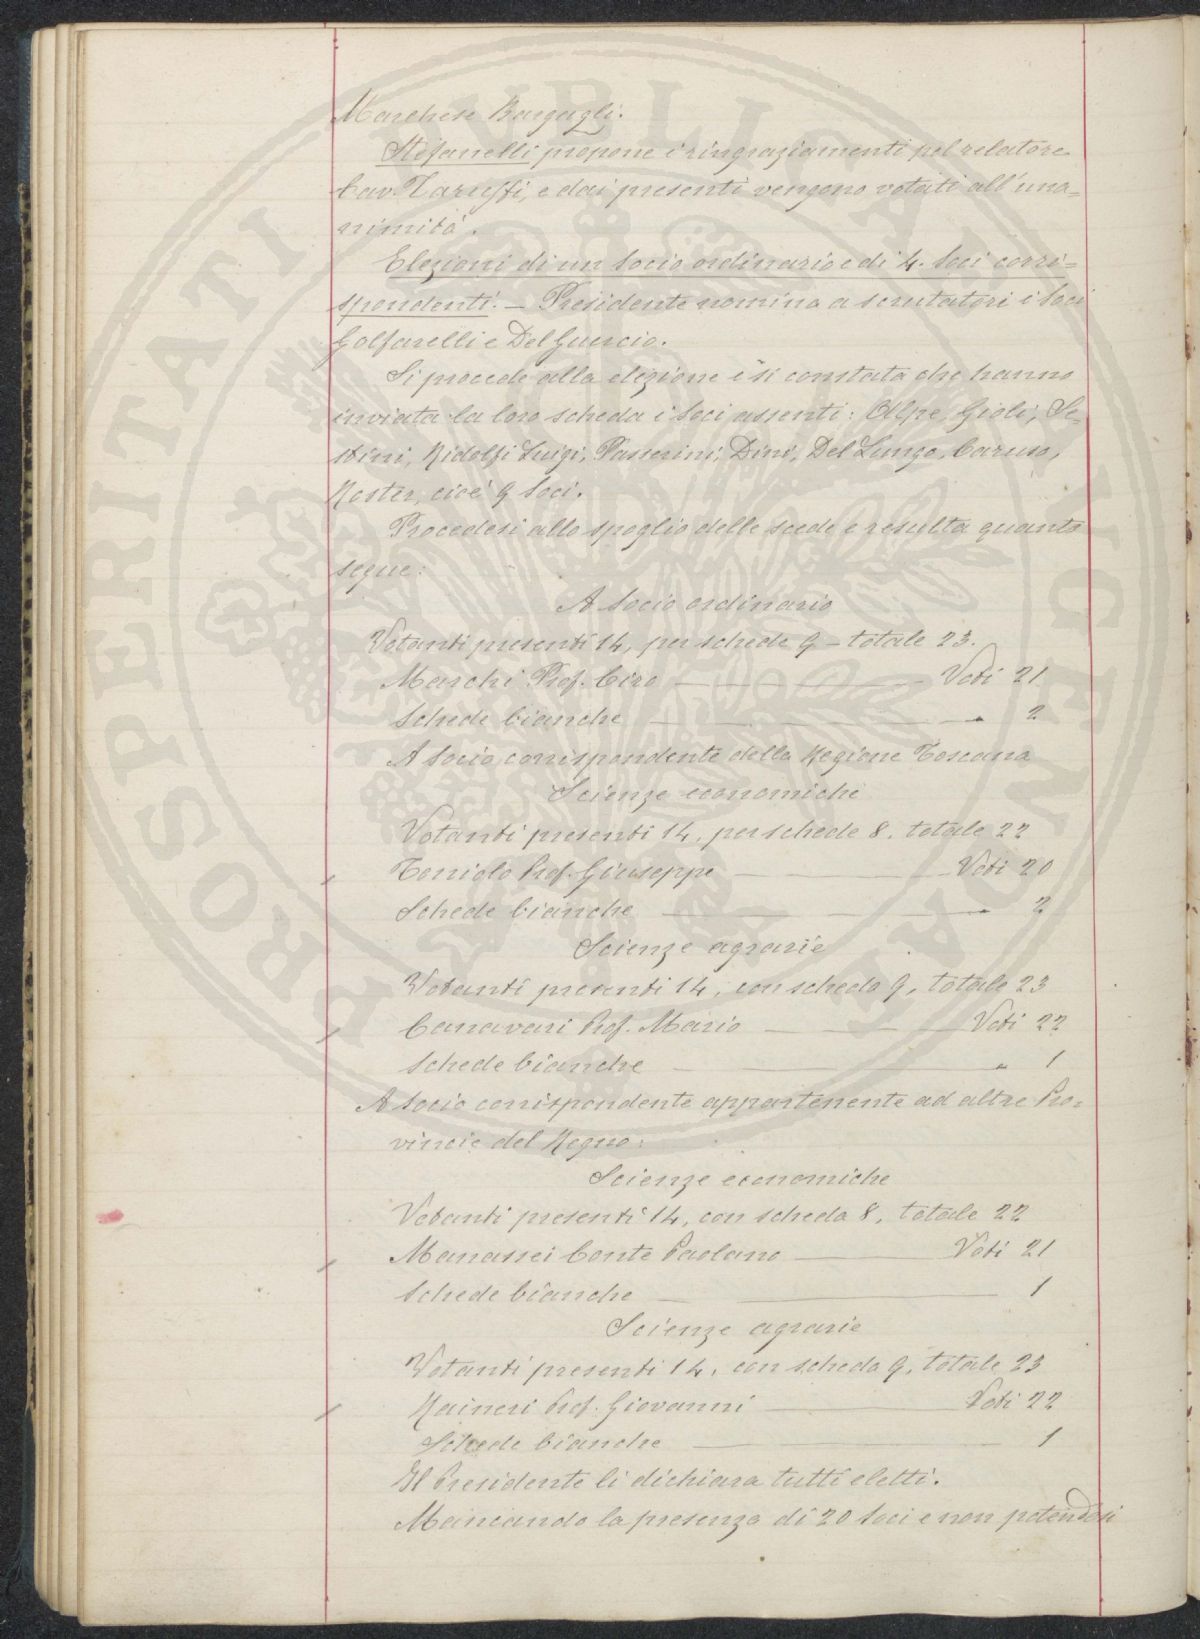 Marchese Bargagli.
Stefanelli propone i ringraziamenti pel relatore
Cav. Taruffi, e dai presenti vengono votati all'una=
nimità.
Elezioni di un Socio ordinario e di 4. Soci corri=
spondenti. — Presidente nomina a scrutatori i Soci
Golfarelli e Del Guercio.
Si procede alla elezione e si constata che hanno
inviata la loro scheda i Soci assenti: Alpe, Gioli, Se=
stini, Ridolfi Luigi, Passerini, Dini, Del Lungo, Caruso,
Roster, cioè 9 Soci.
Procedesi allo spoglio delle scede e resulta quanto
segue:
A Socio ordinario
Votanti presenti 14, per schede 9 — totale 23.
Marchi Prof. Ciro — Voti 21
Schede bianche — " 2
A Socio corrispondente della Regione Toscana
Scienze economiche
Votanti presenti 14, per schede 8, totale 22
Toniolo Prof. Giuseppe — Voti 20
Schede bianche — " 2
Scienze agrarie
Votanti presenti 14, con scheda 9, totale 23
Canavari Prof. Mario — Voti 22
Schede bianche — " 1
A Socio corrispondente appartenente ad altre Pro=
vincie del Regno:
Scienze economiche
Votanti presenti 14, con scheda 8, totale 22
Manassei Conte Paolano — Voti 21
Schede bianche — 1
Scienze agrarie
Votanti presenti 14, con scheda 9, totale 23
Raineri Prof. Giovanni — Voti 22
Schede bianche — 1
Il Presidente li dichiara tutti eletti.
Mancando la presenza di 20 Soci e non potendosi
PROSPERITATI PVBLICAE AVGENDAE